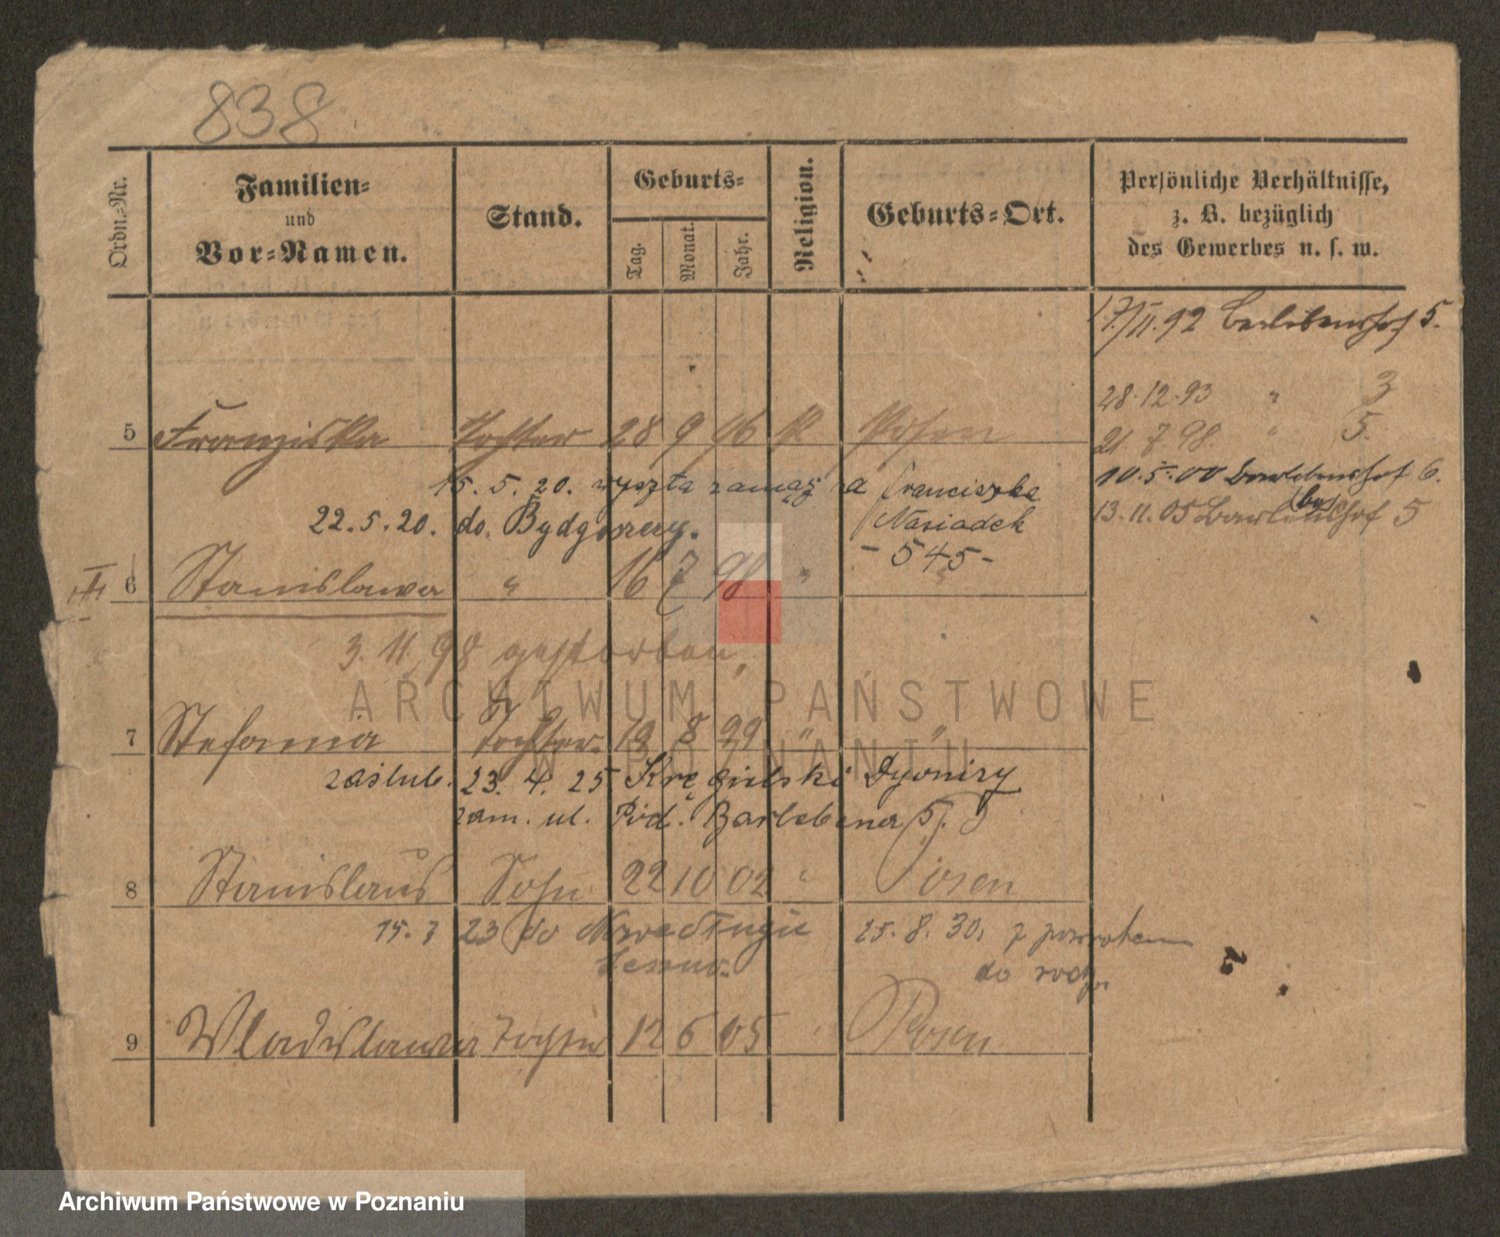 838
Ordn.-Nr.
Familien-
und
Vor-Namen.
Stand.
Geburts-
Tag.
Monat.
Jahr.
Religion.
Geburts-Ort.
Persönliche Verhältnisse,
z. B. bezüglich
des Gewerbes u. s. w.
17/11.92 5.
28.12.93 " 3
21.7.98 " 5.
10.5.00 6.
13.11.05 5
5 Franziska Tochter 28 9 96 K Posen
15.5.20. wyszła zamąż a Franciszka
22.5.20. do Bydgoszczy. Nasiadek
- 545 -
6 Stanislawa " 16 7 98 "
3.11.98 gestorben,
7 Stefania Tochter 19 8 99 " "
zaślub. 23.4.25 Kręgielski Dyonizy
zam. ul. Pód. Barlebena 5.
8 Stanislaus Sohn 22 10 02 " Posen
15.7 23 do 25.8.30. z powrotem
do rodz.
9 Wladislawa Tochter 12 6 05 Posen
ARCHIWUM PAŃSTWOWE
W POZNANIU
Archiwum Państwowe w Poznaniu